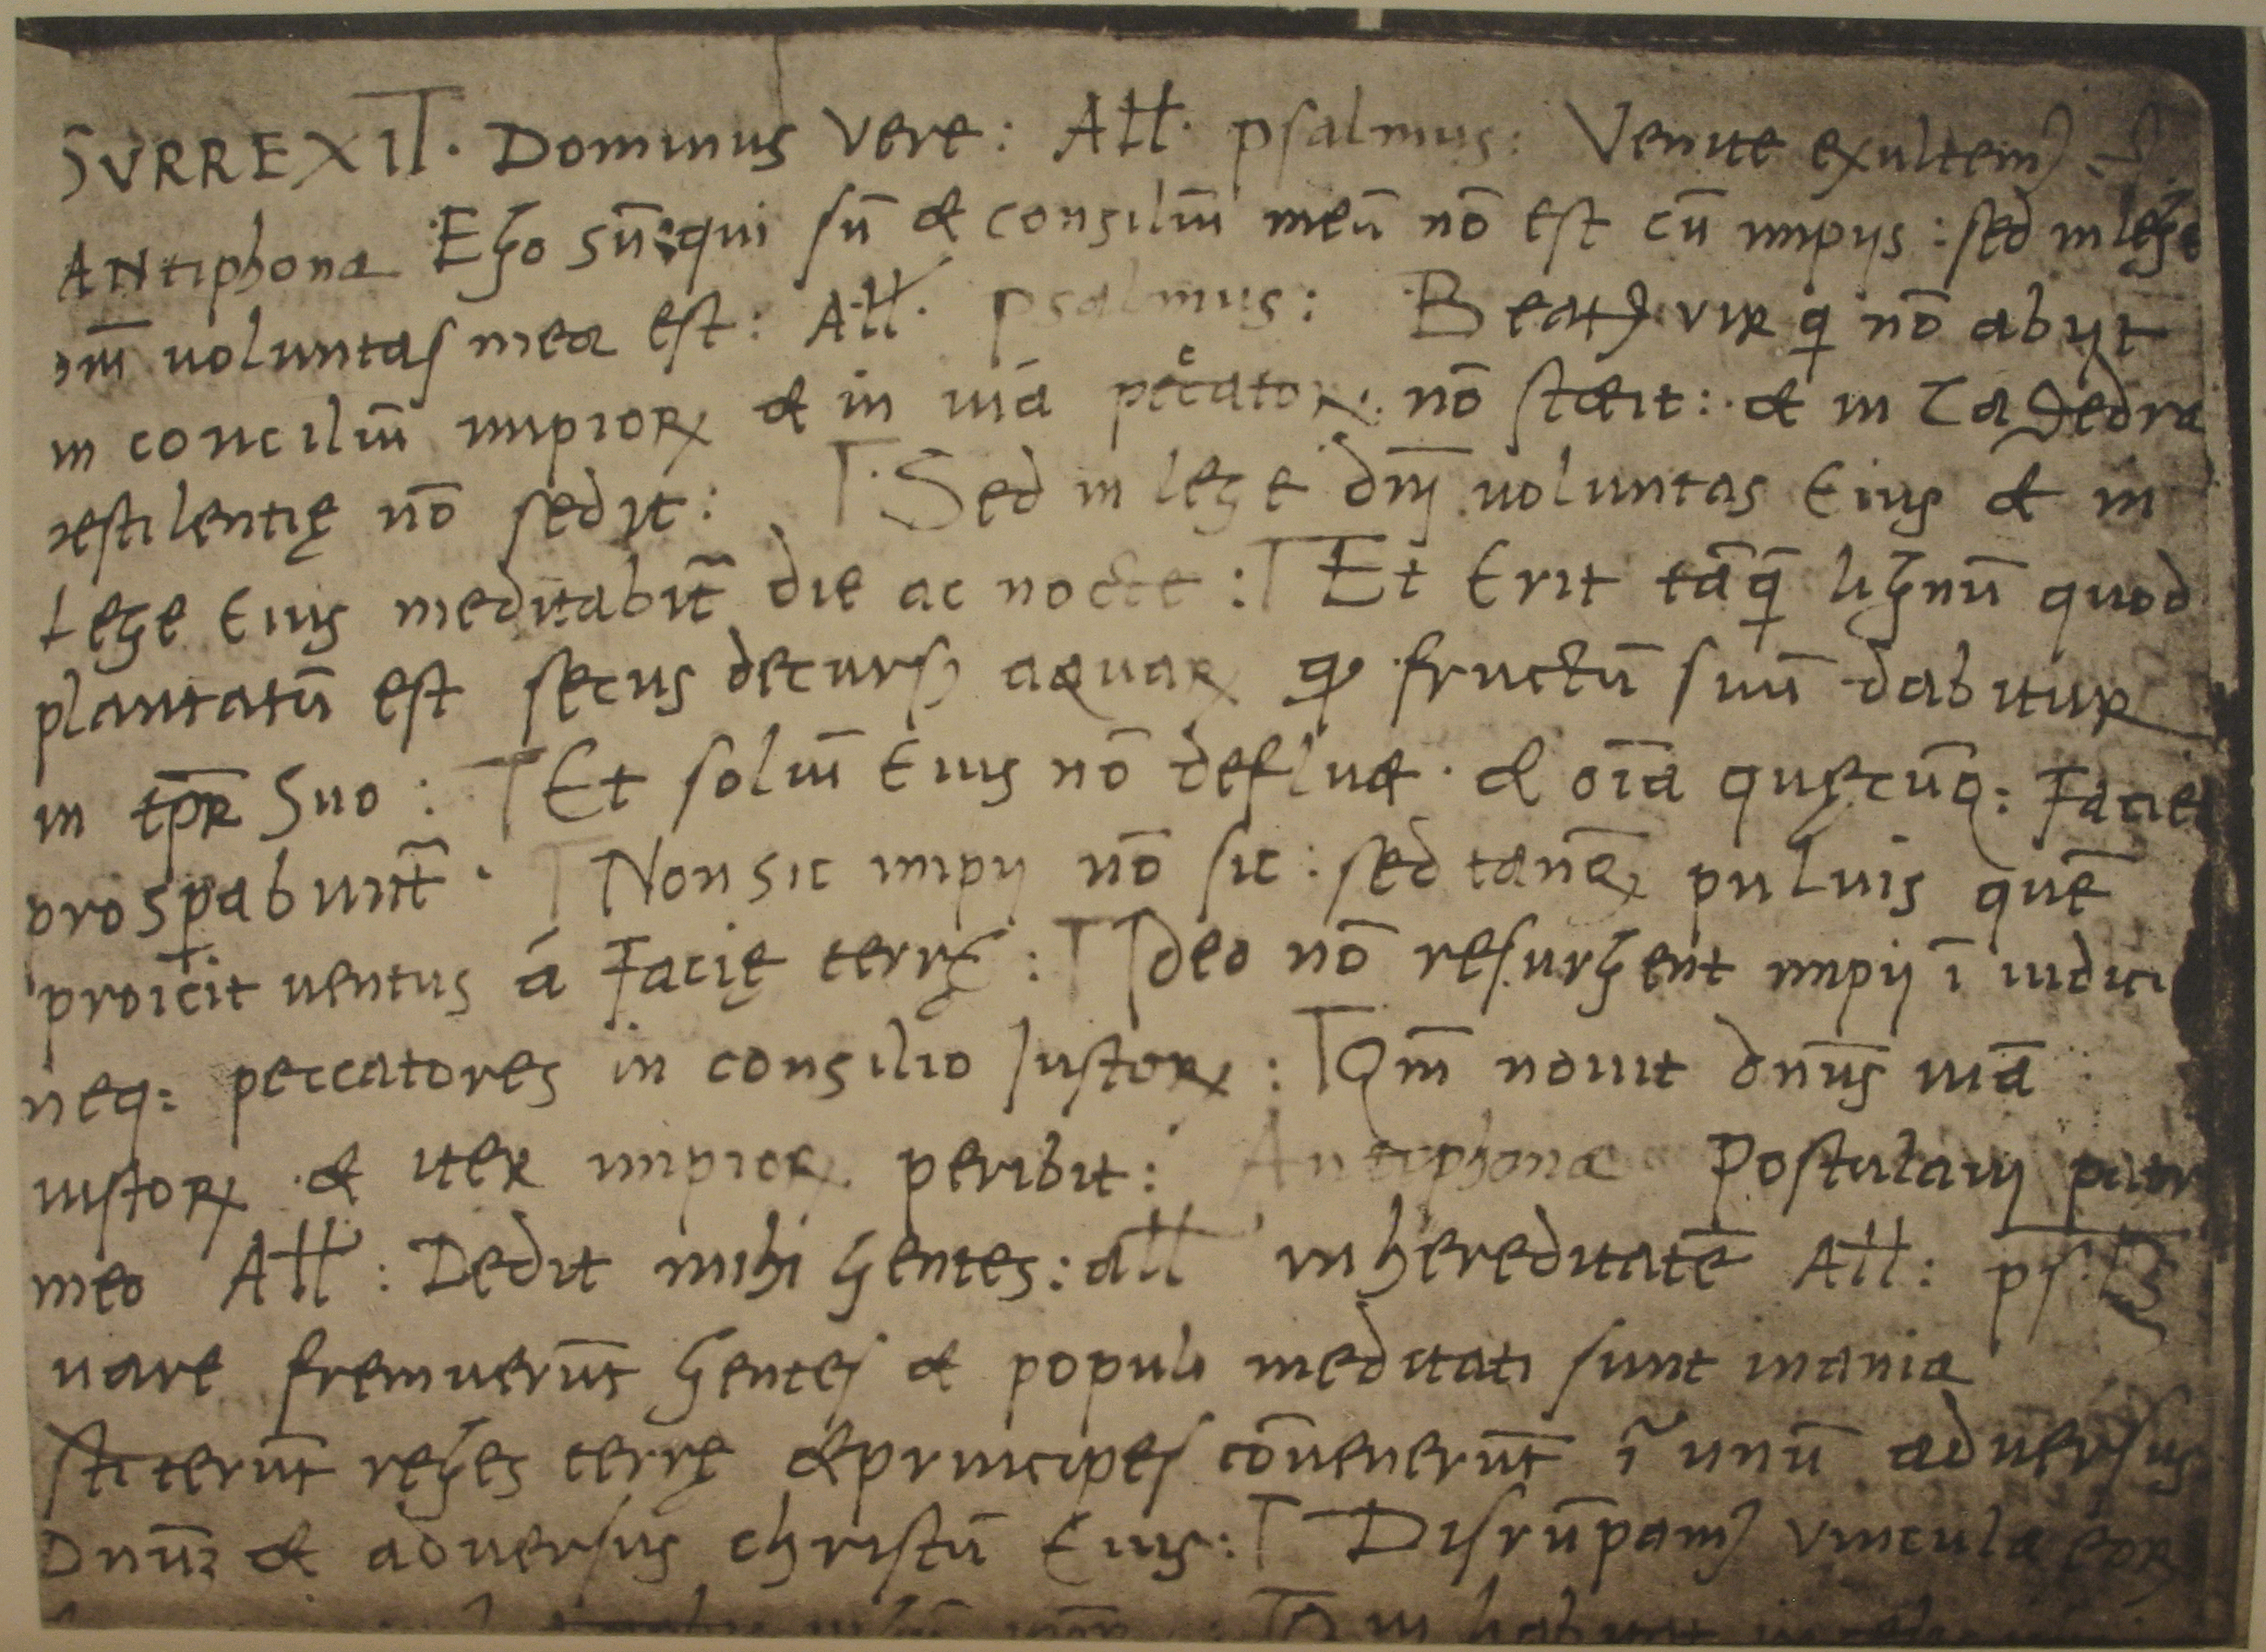 SVRREXIT. Dominus vere: All. psalmus: Venite exultem⁹
ANtiphona Ego sū qui sū & consiliū meū nō est cū impijs: sed in lege
dnī voluntas mea est: All. psalmus: Beat⁹ vir q nō abijt
in conciliū impioꝝ & in uiā peccatoꝝ nō stetit: & in Cathedra
pestilentię nō sedit: Sed in lege dnī voluntas Eius & in
Lege Eius meditabit̃ die ac nocte: Et Erit tāq̄ lignū quod
plantatū est secus decurs⁹ aquaꝝ qd fructū suū dabitur
in tp̄r Suo: Et foliū Eius nō defluet. & oīa quęcūq: Faciet
prosꝑabunt̃. Non sic impij nō sic: sed tanq̄ puluis quē
proicit uentus á Facię terrę: Ideo nō resurgent impij ī iudici
neq: peccatores in consilio Iustoꝝ: Qm̄ nouit dnūs uiā
iustoꝝ & iter impioꝝ peribit: Antiphona Postulaui patr
meo All: Dedit mihi gentes: all in hereditatē All: ps.
uare fremuerūt gentes & populi meditati sunt inania
stiterūt reges terrę & principes cōuenerūt ī unū aduersus
Dnūꝫ & aduersus christū Eius: Disrūpam⁹ vincula eoꝝ